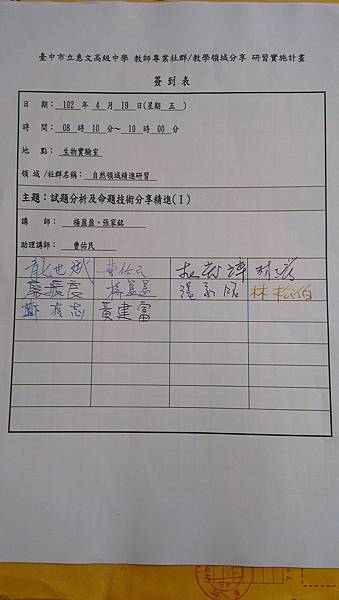 臺中市立惠文高級中學 教師專業社群/教學領域分享 研習實施計畫
簽到表
日 期: 102 年 4 月 19 日(星期 五 )
時 間: 08 時 10 分~ 10 時 00 分
地 點: 生物實驗室
領 域 /社群名稱: 自然領域精進研習
主題:試題分析及命題技術分享精進(I)
講 師: 楊盈盈、張家銘
助理講師: 曹佑民
曹佑民
廖振度 楊盈盈 林松伯
鄭有志 黃建富